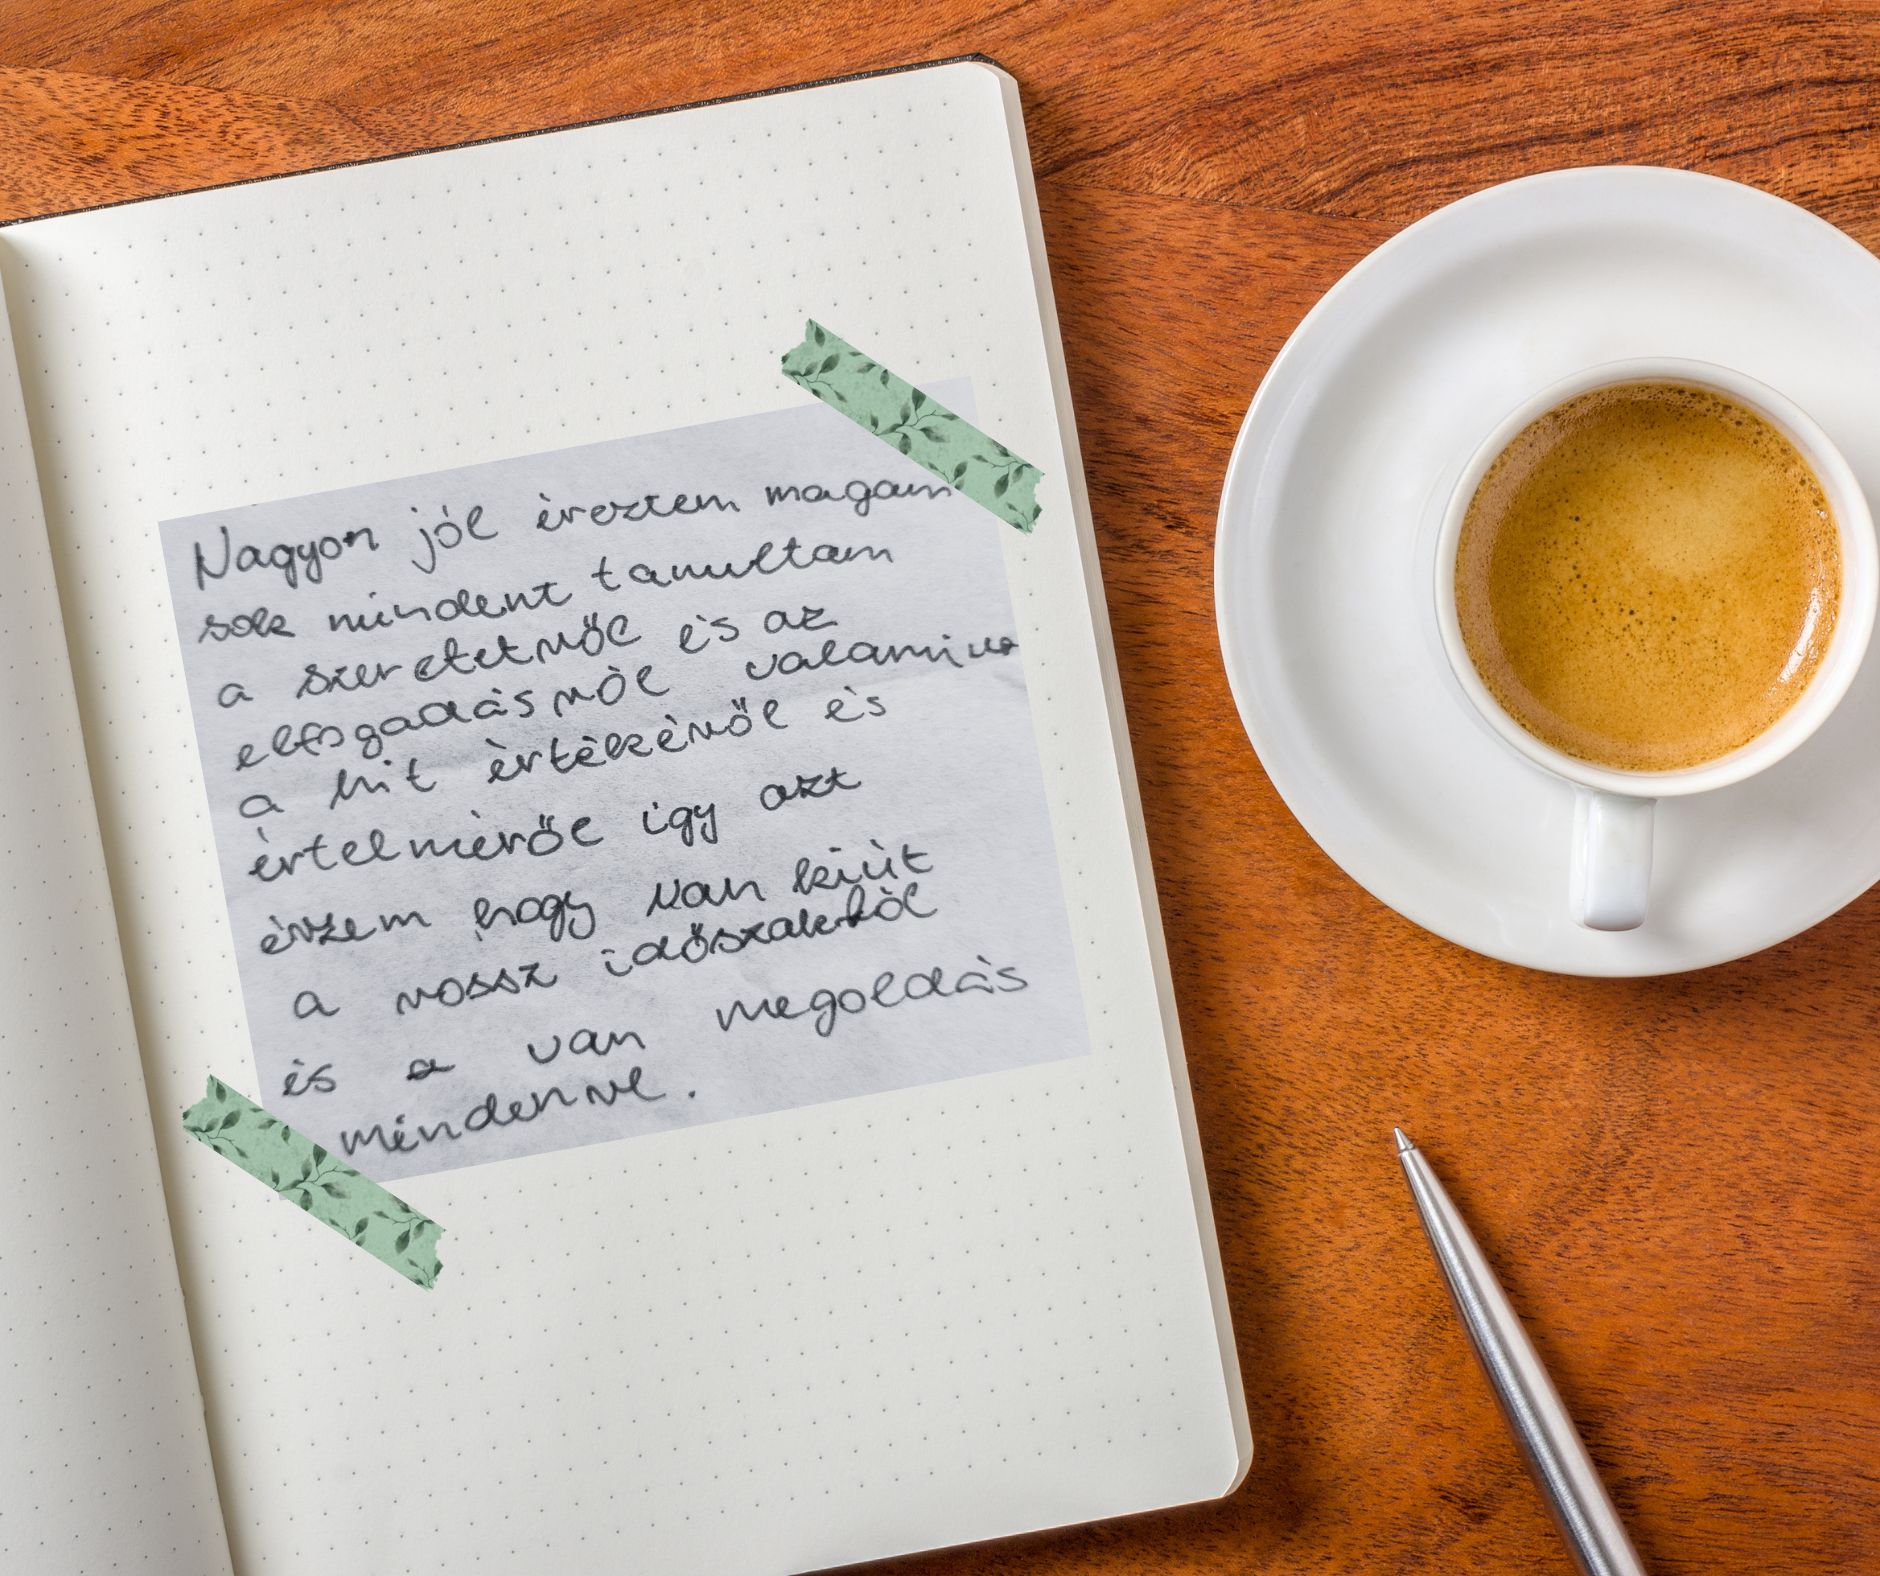 Nagyon jól éreztem magam
sok mindent tanultam
a szeretetről és az
elfogadásról valamint
a hit értékéről és
értelméről így azt
érzem hogy van kiút
a rossz időszakból
és a van megoldás
mindenre.